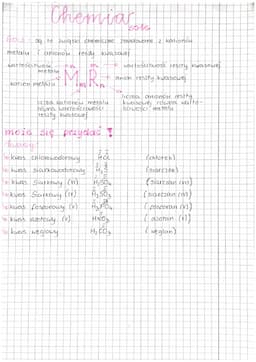 Chemia
sole
Sole są to związki chemiczne zbudowane z kationów
metalu i anionów reszty kwasowej
wartościowość metalu
n m
wartościowość reszty kwasowej
kation metalu
MmRn
anion reszty kwasowej
liczba kationów metalu równa wartościowości reszty kwasowej
liczba anionów reszty kwasowej równa wartościowości metalu
mogą się przydać!
kwasy:
kwas chlorowodorowy HCl (chlorek)
kwas siarkowodorowy H2S (siarczek)
kwas siarkowy (IV) H2SO3 (siarczan (IV))
kwas siarkowy (VI) H2SO4 (siarczan (VI))
kwas fosforowy (V) H3PO4 (fosforan (V))
kwas azotowy (V) HNO3 (azotan (V))
kwas węglowy H2CO3 (węglan)